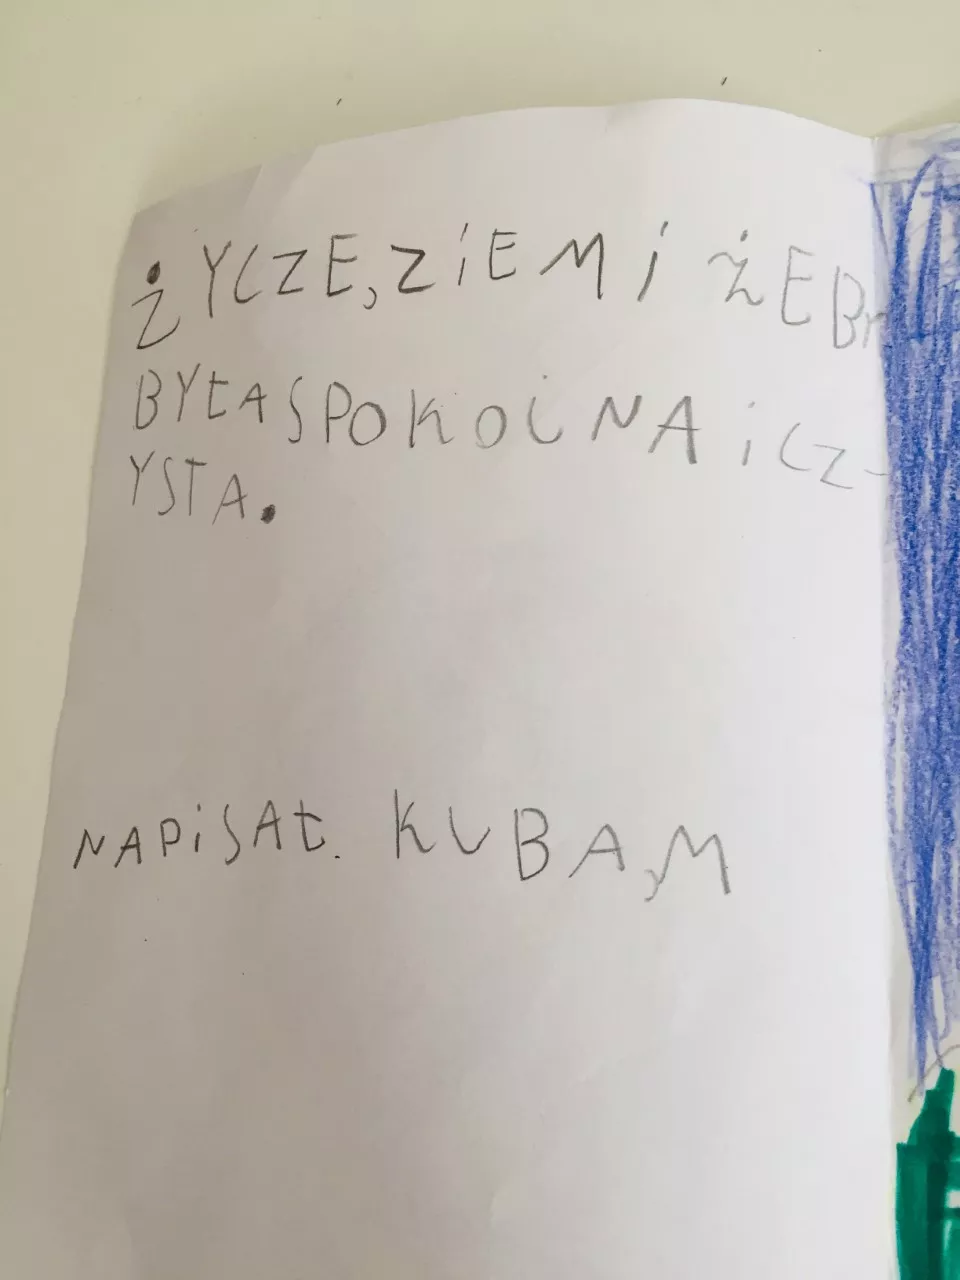 ŻYCZE, ZiEMi ŻEBY
BYŁA SPOKOiNA i CZ-
YSTA.
NAPiSAŁ. KUBA, M